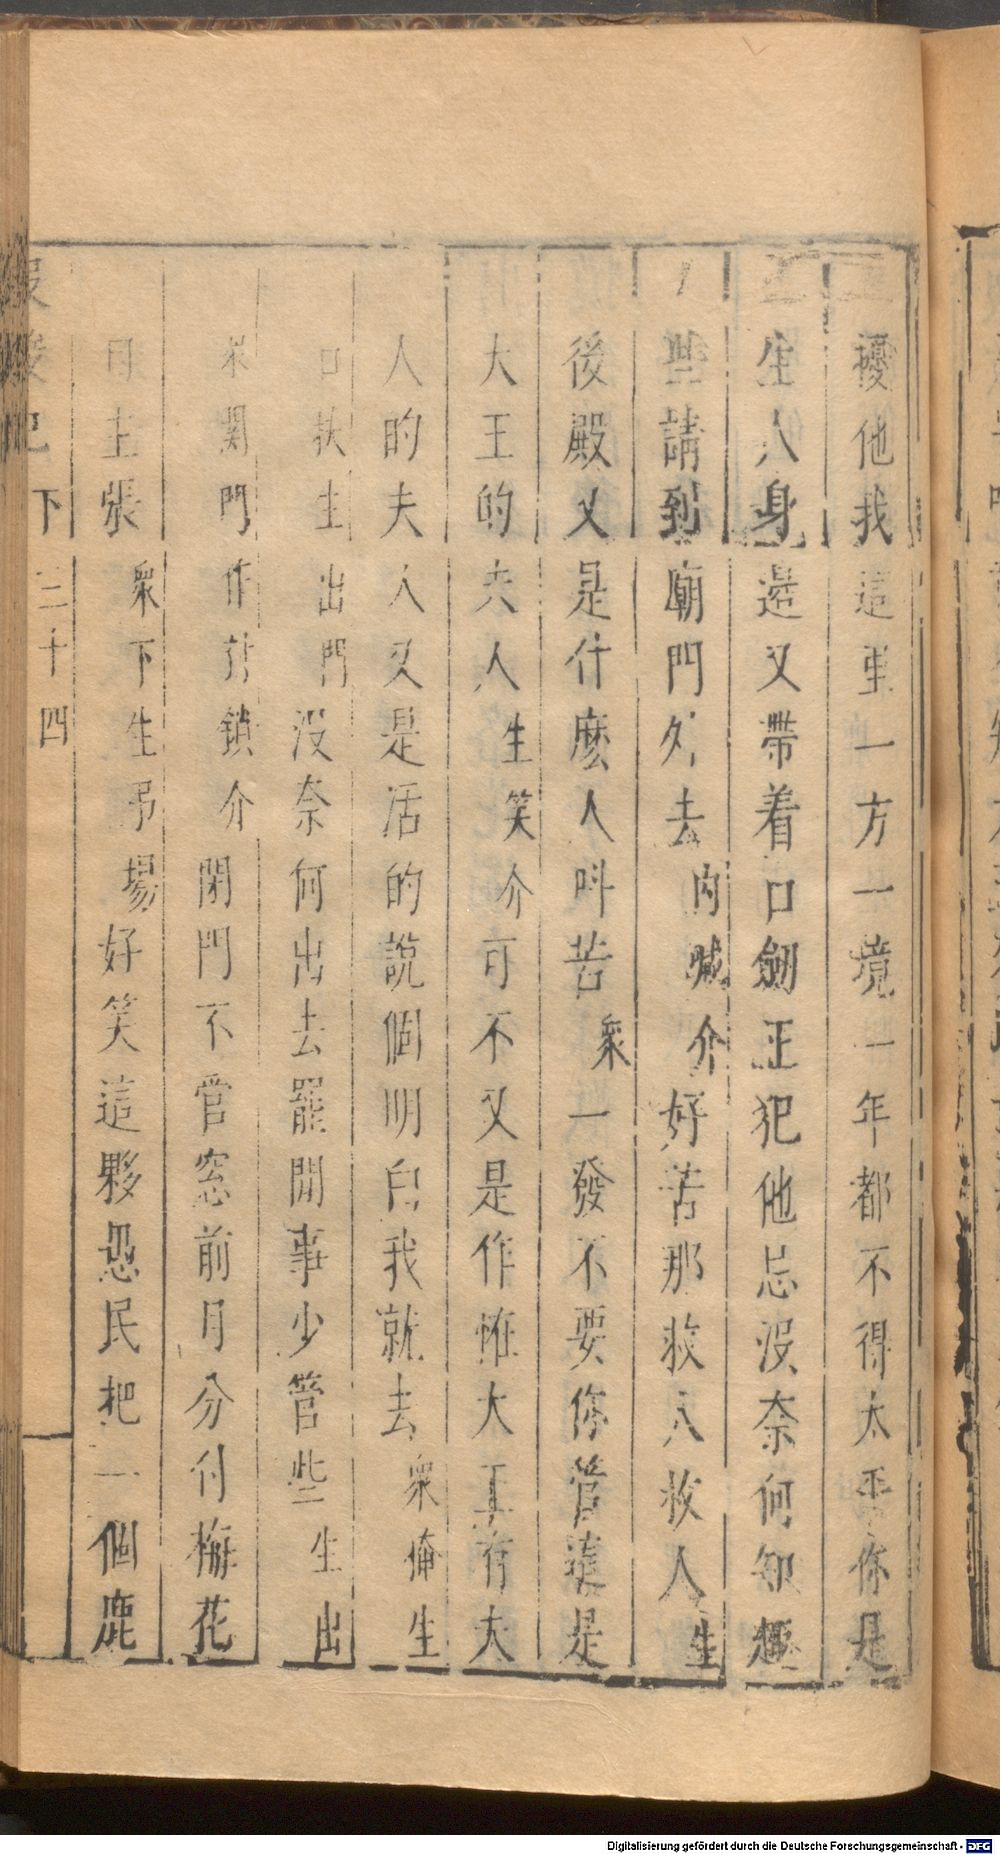 擾他我這里一方一境一年都不得太平你是
生人身邊又帶着口劒王犯他忌沒奈何知趣
些請到廟門外去內喊介好苦那救人救人生
後殿又是什麽人呌苦衆一發不要你管這是
大王的夫人生笑介可不又是作怪大王有夫
人的夫人又是活的說個明白我就去衆俺生
口扶生出門沒奈何出去罷閒事少管些生出
衆關門作鎖介閉門不管窓前月分付梅花
自主張衆下生弔場好笑這夥愚民把一個鹿
記 下 二十四
Digitalisierung gefördert durch die Deutsche Forschungsgemeinschaft - DFG